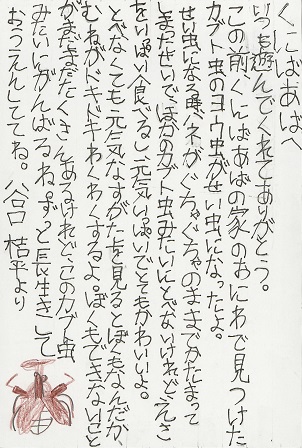 くにばあばへ
いつも遊んでくれてありがとう。
この前、くにばあばの家のおにわで見つけた
カブト虫のヨウ虫がせい虫になったよ。
せい虫になる時、ハネがぐちゃぐちゃのままでかたまって
しまったせいでほかのカブト虫みたいにとべないけれど、えさ
をいっぱい食べるし、元気いっぱいでとてもかわいいよ。
とべなくても元気なすがたを見るとぼくもなんだか、
むねがドキドキわくわくするよ。ぼくもできないこと
がまだまだたくさんあるけれど、このカブト虫
みたいにがんばるね。ずっと長生きして
おうえんしててね。谷口 桔平より